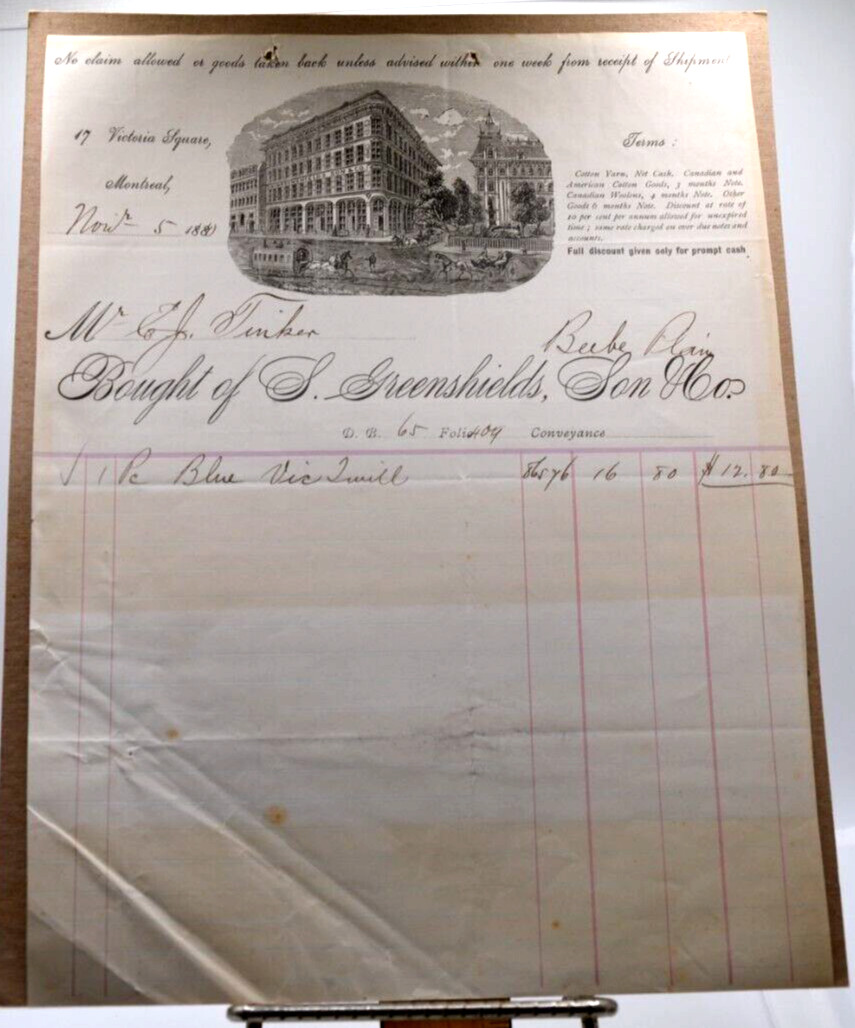 No claim allowed or goods taken back unless advised within one week from receipt of Shipment
17 Victoria Square,
Montreal,
Nov 5 188
Terms :
Cotton Yarn, Net Cash. Canadian and
American Cotton Goods, 3 months Note.
Canadian Woolens, 4 months Note. Other
Goods 6 months Note. Discount at rate of
10 per cent per annum allowed for unexpired
time ; same rate charged on over due notes and
accounts.
Full discount given only for prompt cash
Mr E J. Tinker
Beebe Plain
Bought of S. Greenshields, Son & Co.
D. B. 65 Folio 409 Conveyance
1 Pc Blue Vic Twill 16 80 $12.80